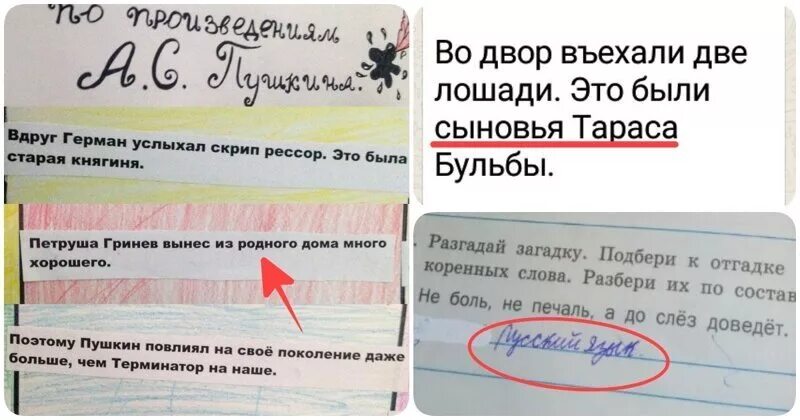 по произведениям
А.С. Пушкина.
Вдруг Герман услыхал скрип рессор. Это была
старая княгиня.
Петруша Гринев вынес из родного дома много
хорошего.
Поэтому Пушкин повлиял на своё поколение даже
больше, чем Терминатор на наше.
Во двор въехали две
лошади. Это были
сыновья Тараса
Бульбы.
Разгадай загадку. Подбери к отгадке
коренных слова. Разбери их по состав
Не боль, не печаль, а до слёз доведёт.
Русский язык